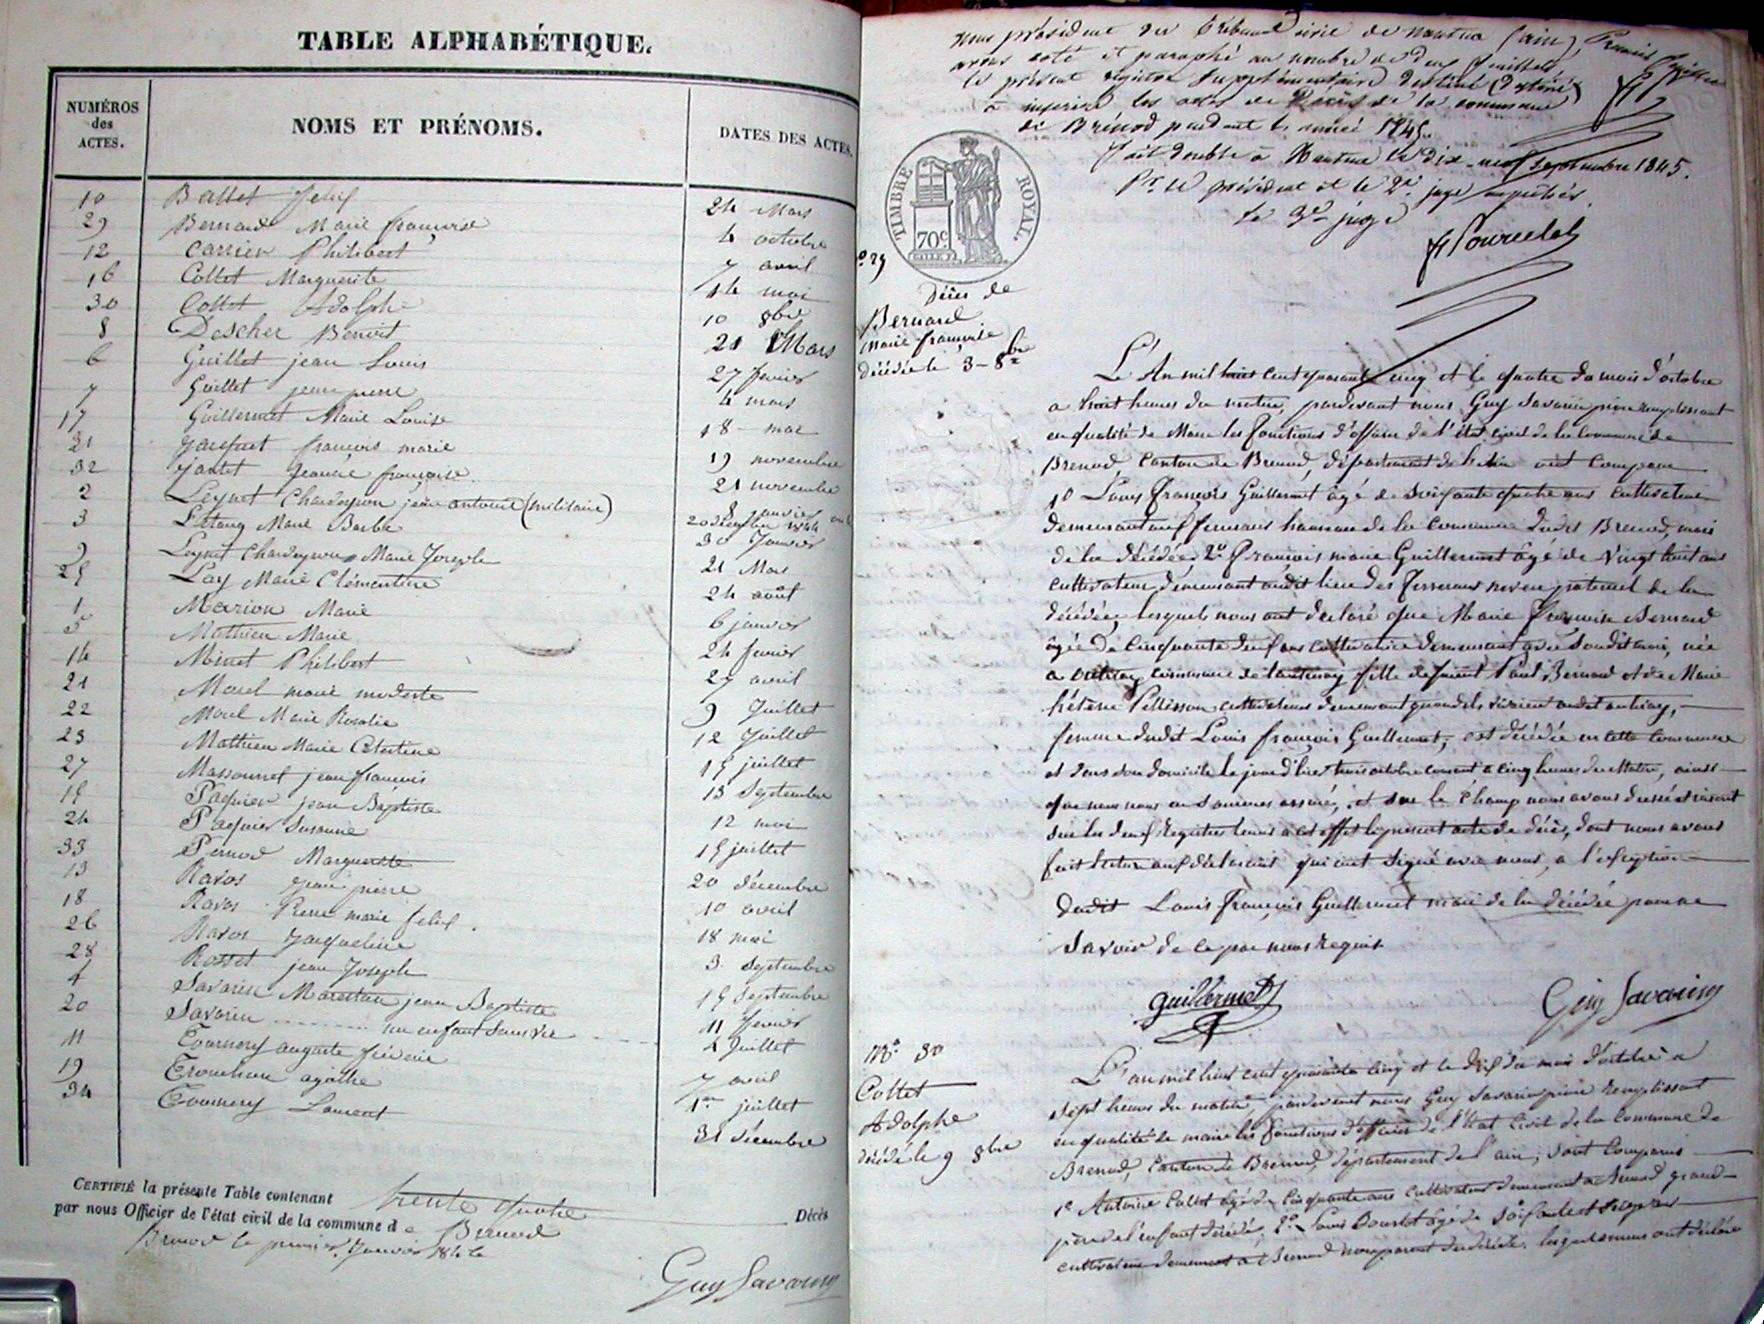 TABLE ALPHABÉTIQUE.
NUMÉROS des ACTES.
NOMS ET PRÉNOMS.
DATES DES ACTES.
10 Ballet felix 24 Mars
29 Bernard Marie françoise 4 octobre
12 Carrier Philibert 7 avril
16 Collet Marguerite 14 mai
30 Collet Adolphe 10 8bre
8 Descher Benoit 21 Mars
6 Guillet jean Louis 27 fevrier
7 Guillet jean pierre 4 mars
17 Guillermet Marie Louise 18 mai
31 Jacquet francois marie 19 novembre
32 Jantet Jeanne françoise 21 novembre
2 Leynet Chardeyron jean antoine (militaire) 8 janvier
20 décembre 1844
3 Létang Marie Barbe 30 Janvier
9 Leynet Chardeyron Marie Joseph 21 Mars
25 Lay Marie Clémentine 24 août
1 Marion Marie 6 janvier
5 Mathieu Marie 24 fevrier
14 Minet Philibert 27 avril
21 Morel marie modeste 9 Juillet
22 Morel Marie Rosalie 12 Juillet
23 Mathieu Marie Celestine 15 juillet
27 Massonnet jean françois 13 Septembre
15 Paquier jean Baptiste 12 mai
24 Paquier Susanne 15 juillet
33 Pernod Marguerite 20 décembre
13 Ravos jean pierre 10 avril
18 Ravos Pierre marie felix 18 mai
26 Ravos Jacqueline 3 Septembre
28 Rosset jean Joseph 15 Septembre
4 Savarin Marestan jean Baptiste 11 fevrier
20 Savarin un enfant sans vie 4 Juillet
11 Tournery auguste 7 avril
19 Trouchon agathe 1er juillet
34 Tournery Laurent 31 décembre
CERTIFIÉ la présente Table contenant trente quatre Décès
par nous Officier de l'état civil de la commune de Brenod
Brenod le premier Janvier 1846
Guy Savarin
nous président du tribunal civil de nantua (ain),
avons coté et paraphé au nombre de deux feuillets
le présent registre supplémentaire destiné (destiné)
à inscrire les actes de Décès de la commune
de Brénod pendant l'année 1845.
fait double à Nantua le dix-neuf septembre 1845.
Pr le président et le 2e juge empêchés.
le 3e juge
TIMBRE ROYAL.
70c
No 29
Décès de
Bernard
Marie françoise
décédée le 3 8bre
L'An mil huit cent quarante cinq et le quatre du mois d'octobre
a huit heures du matin, pardevant nous Guy Savarin remplissant
en qualité de Maire les fonctions d'officier de l'état civil de la commune de
Brenod, Canton de Brenod, département de l'Ain ont Comparu
1o Louis François Guillermet âgé de soixante quatre ans cultivateur
demeurant hameau de la commune dudit Brenod, mari
de la décédée, 2o François marie Guillermet âgé de vingt huit ans
cultivateur demeurant audit lieu des neveu paternel de la
décédée, lesquels nous ont declaré que Marie Françoise Bernard
âgée de cinquante deux ans cultivatrice demeurant avec Sondit mari, née
a commune de Lantenay fille de feu Paul Bernard et de Marie
hélène Pellisson cultivateurs demeurant quand ils vivaient audit
femme dudit Louis françois Guillermet, est décédée en cette commune
et dans son domicile le jour d'hier trois octobre courant a cinq heures du Matin, ainsi
que nous nous en sommes assuré, et sur le Champ nous avons dressé et inscrit
sur les deux Registres tenus a cet effet le present acte de décès, dont nous avons
fait lecture aux déclarans qui ont signé avec nous, a l'exception
dudit Louis François Guillermet mari de la décédée pour ne
savoir de ce par nous Requis
Guillermet Guy Savarin
No 30
Collet
Adolphe
décédé le 9 8bre
L'an mil huit cent quarante cinq et le dix du mois d'octobre a
sept heures du matin, pardevant nous Guy Savarin remplissant
en qualité de maire les fonctions d'officier de l'Etat Civil de la Commune de
Brenod, Canton de Brenod, département de l'ain, sont Comparus
1o Antoine Collet âgé de Cinquante ans cultivateur demeurant a Brenod grand
père de l'enfant décédé, 2o Louis âgé de soixante et
cultivateur demeurant a Brenod non parent du décédé, lesquels nous ont déclaré